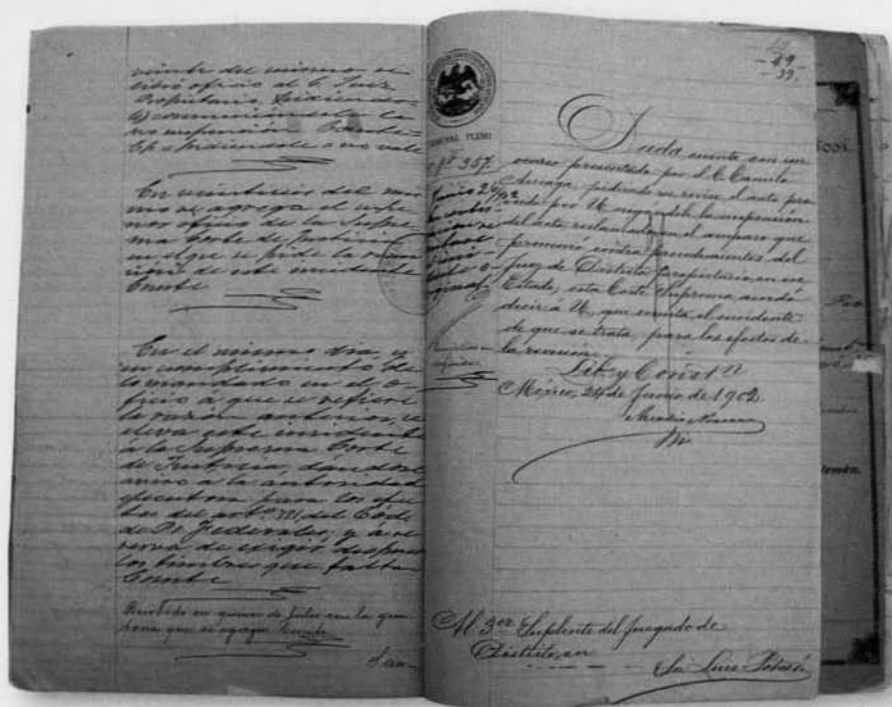 veinte del mismo se
libró oficio al C. Juez
Propietario, pidiendo
y comunicándole la
no suspensión
pidiéndole
Conste
En veintiseis del mis-
mo se agrega el ante-
rior oficio de la Supre-
ma Corte de Justicia
en el que se pide la
de este incidente
Conste
En el mismo dia, y
en cumplimiento de
lo mandado en el o-
ficio á que se refiere
la razón anterior, se
eleva este incidente
á la Suprema Corte
de Justicia, dándose
aviso á la autoridad
ejecutora para los efec-
tos del art. del Cód.
de Ps. Federales, y á re-
serva de exigir despues
los timbres que faltan
Conste
Recibido en quince de Julio en la que
hace que se agrega Conste
49
- 39.
TRIBUNAL PLENO
Nº 357.
Junio 2
Dada cuenta con un
ocurso presentado por el C. Camilo
Arriaga, pidiendo se revise el auto pro-
veido por U. negándole la suspensión
del acto reclamado en el amparo que
promovió contra procedimientos del
Juez de Distrito propietario en ese
Estado, esta Corte Suprema, acordó
decir á U. que remita el incidente
de que se trata, para los efectos de
la revisión.
Lib. y Constn
México, 24 de Junio de 1902.
Al 3er Suplente del Juzgado de
Distrito, en
San Luis Potosí.